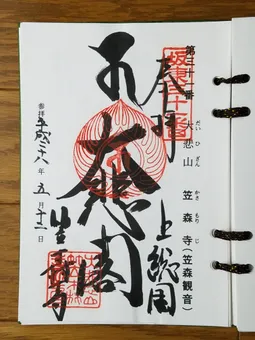 第三十一番 大悲山 笠森寺(笠森観音)
だいひざん かさもりじ
坂東三十一番
奉拝
上総国
大悲閣
笠森寺
参拝 平成二十八年 五月十二日